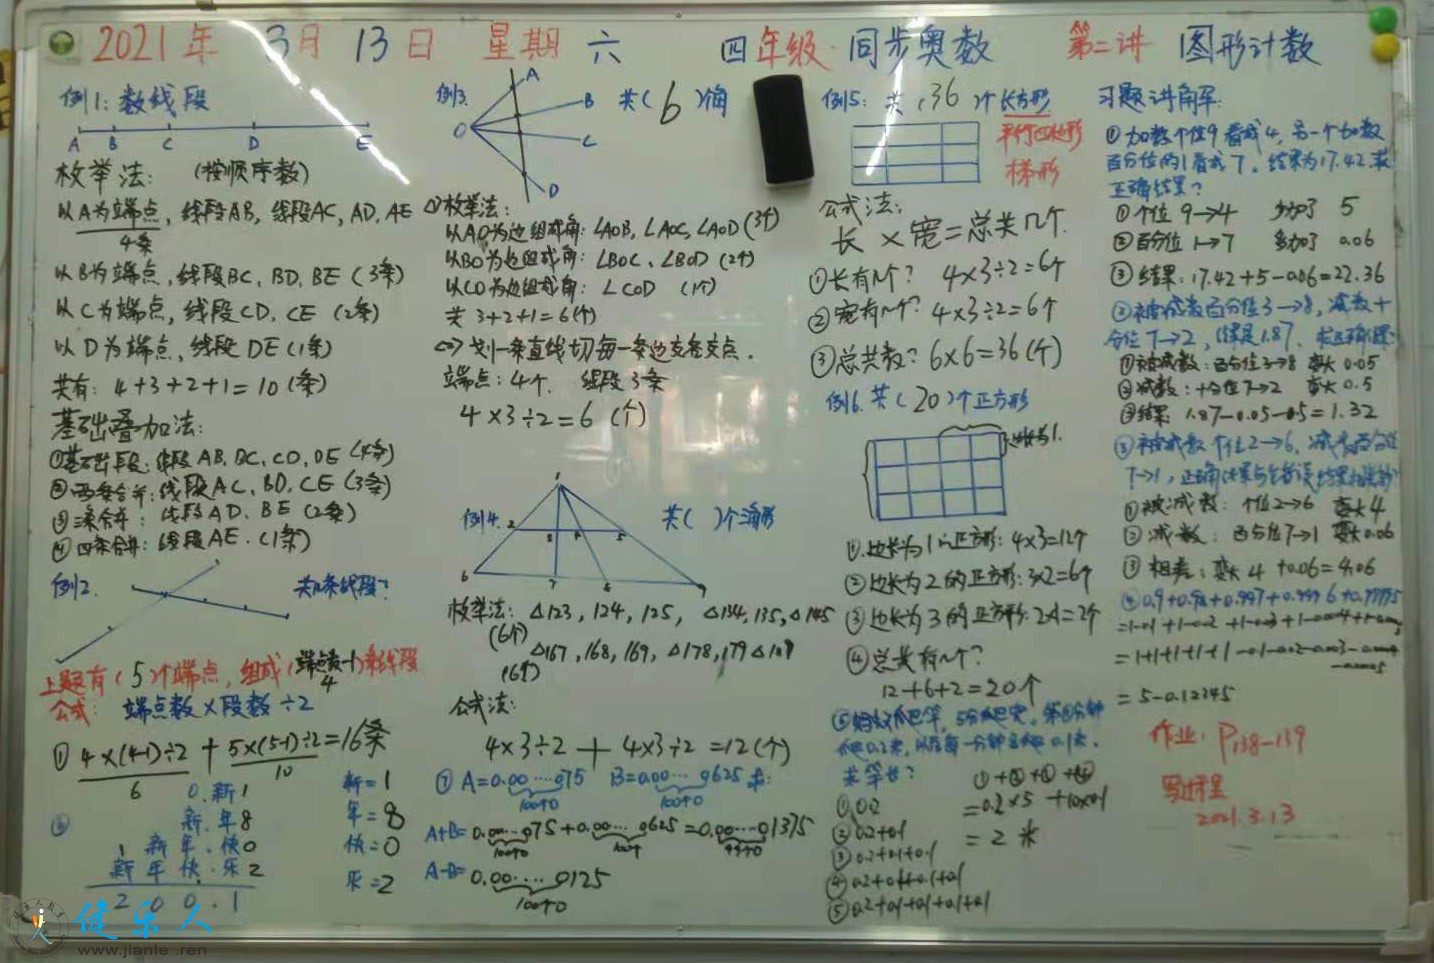 2021年 3月 13日 星期六 四年级·同步奥数 第二讲 图形计数
例1:数线段
A B C D E
枚举法: (按顺序数)
以A为端点,线段AB,线段AC,AD,AE
4条
以B为端点,线段BC,BD,BE(3条)
以C为端点,线段CD,CE(2条)
以D为端点,线段DE(1条)
共有:4+3+2+1=10(条)
基础叠加法:
①基础段:线段AB,BC,CD,DE(4条)
②两条合并:线段AC,BD,CE(3条)
③三条合并:线段AD,BE(2条)
④四条合并:线段AE.(1条)
例2.
共几条线段?
上题有(5)个端点,组成(端点数-1)条线段
4
公式:端点数×段数÷2
① 4×(4-1)÷2 + 5×(5-1)÷2=16条
6 10
0.新1
新.年8
1 新年.快0
新年快.乐2
2 0 0 . 1
新=1
年=8
快=0
乐=2
例3.
A
B
O
C
D
共(6)个角
枚举法:
以AO为边组成角:∠AOB,∠AOC,∠AOD(3个)
以BO为边组成角:∠BOC、∠BOD(2个)
以CO为边组成角:∠COD (1个)
共 3+2+1=6(个)
划一条直线切每一条边交各交点.
端点:4个. 线段3条
4×3÷2=6(个)
例4.
1
2 3 4 5
6 7 8 9
共( )个三角形
枚举法:△123,124,125,△134,135,△145
(6个)
△167,168,169,△178,179
(6个)
公式法:
4×3÷2 + 4×3÷2=12(个)
⑦ A=0.00……075 B=0.00……0625 求:
100个0 100个0
A+B=0.00……075+0.00……0625=0.00……01375
100个0 99个0
A-B=0.00……0125
100个0
例5:共(36)个长方形
平行四边形
梯形
公式法:
长×宽=总共几个.
①长有几个? 4×3÷2=6个
②宽有几个? 4×3÷2=6个
③总共数? 6×6=36(个)
例6.共(20)个正方形
边长为1.
①.边长为1的正方形:4×3=12个
②边长为2的正方形:3×2=6个
③边长为3的正方形:2×1=2个
④总共有几个?
12+6+2=20个
①0.2
②0.2+0.1
③0.2+0.1+0.1
④0.2+0.1+0.1+0.1
⑤0.2+0.1+0.1+0.1+0.1
①+②+③+④
=0.2×5 +10×0.1
=2米
习题讲解:
①加数个位9看成4,另一个加数
百分位的1看成7,结果为17.42.求
正确结果?
①个位 9→4 少加了 5
②百分位 1→7 多加了 0.06
③结果:17.42+5-0.06=22.36
②被减数百分位3→8,减数十
分位7→2,结果是1.87.
①被减数:百分位3→8 变大 0.05
②减数:十分位7→2 变大 0.5
③结果: 1.87-0.05-0.5=1.32
③被减数个位2→6,减数百分位
7→1,正确结果与错误结果相差
①被减数:个位2→6 变大4
②减数:百分位7→1 变大0.06
③相差:变大 4+0.06=4.06
=5-0.12345
作业:P138-139
写过程
2021.3.13
健乐人
www.jianle.ren